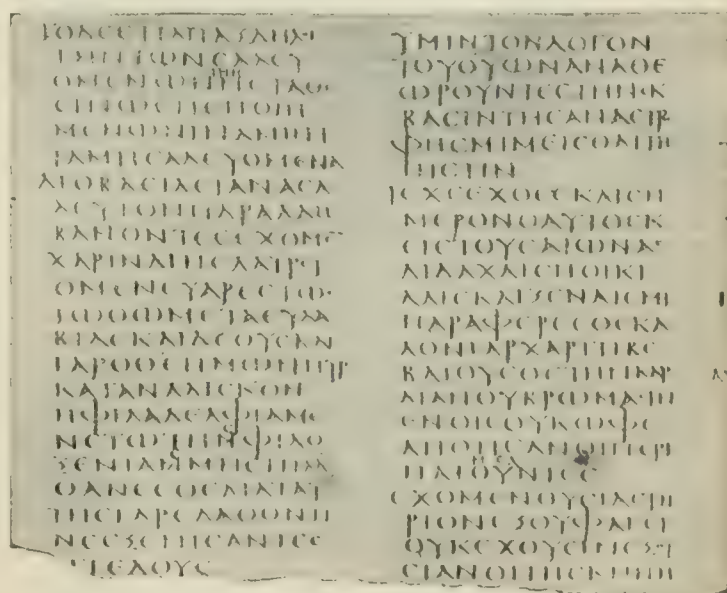 ΤΟΔΕΕΤΙΑΠΑΞΔΗΛΟΙ
ΤΗΝΤΩΝΣΑΛΕΥ
ΟΜΕΝΩΝΜΕΤΑΘΕ
ΣΙΝΩΣΠΕΠΟΙΗ
ΜΕΝΩΝΙΝΑΜΙΝΗ
ΤΑΜΗΣΑΛΕΥΟΜΕΝΑ
ΔΙΟΒΑΣΙΛΕΙΑΝΑΣΑ
ΛΕΥΤΟΝΠΑΡΑΛΑΜ
ΒΑΝΟΝΤΕΣΕΧΟΜΕ
ΧΑΡΙΝΔΙΗΣΛΑΤΡΕΥ
ΟΜΕΝΕΥΑΡΕΣΤΩΣ
ΤΩΘΩΜΕΤΑΕΥΛΑ
ΒΙΑΣΚΑΙΔΕΟΥΣΚΑΙ
ΓΑΡΟΘΣΗΜΩΝΠΥΡ
ΚΑΤΑΝΑΛΙΣΚΟΝ
ΗΦΙΛΑΔΕΛΦΙΑΜΕ
ΝΕΤΩΤΗΝΦΙΛΟ
ΞΕΝΙΑΝΜΗΕΠΙΛΑ
ΘΑΝΕΣΘΕΔΙΑΤΑΥ
ΤΗΣΓΑΡΕΛΑΘΟΝΤΙ
ΝΕΣΞΕΝΙΣΑΝΤΕΣ
ΑΓΓΕΛΟΥΣ
ΥΜΙΝΤΟΝΛΟΓΟΝ
ΤΟΥΘΥΩΝΑΝΑΘΕ
ΩΡΟΥΝΤΕΣΤΗΝΕΚ
ΒΑΣΙΝΤΗΣΑΝΑΣΤΡ
ΦΗΣΜΙΜΕΙΣΘΑΙΤΗ
ΠΙΣΤΙΝ
ΙΣΧΣΕΧΘΕΣΚΑΙΣΗ
ΜΕΡΟΝΟΑΥΤΟΣΚ
ΕΙΣΤΟΥΣΑΙΩΝΑΣ
ΔΙΔΑΧΑΙΣΠΟΙΚΙ
ΛΑΙΣΚΑΙΞΕΝΑΙΣΜΗ
ΠΑΡΑΦΕΡΕΣΘΕΚΑ
ΛΟΝΓΑΡΧΑΡΙΤΙΒΕ
ΒΑΙΟΥΣΘΕΤΗΝΚΑΡ
ΔΙΑΝΟΥΒΡΩΜΑΣΙΝ
ΕΝΟΙΣΟΥΚΩΦΕ
ΛΗΘΗΣΑΝΟΙΠΕΡΙ
ΠΑΤΟΥΝΤΕΣ
ΕΧΟΜΕΝΘΥΣΙΑΣΤΗ
ΡΙΟΝΕΞΟΥΦΑΓΕΙ
ΟΥΚΕΧΟΥΣΙΝΕΞΟΥ
ΣΙΑΝΟΙΤΗΣΚΗΝΗ